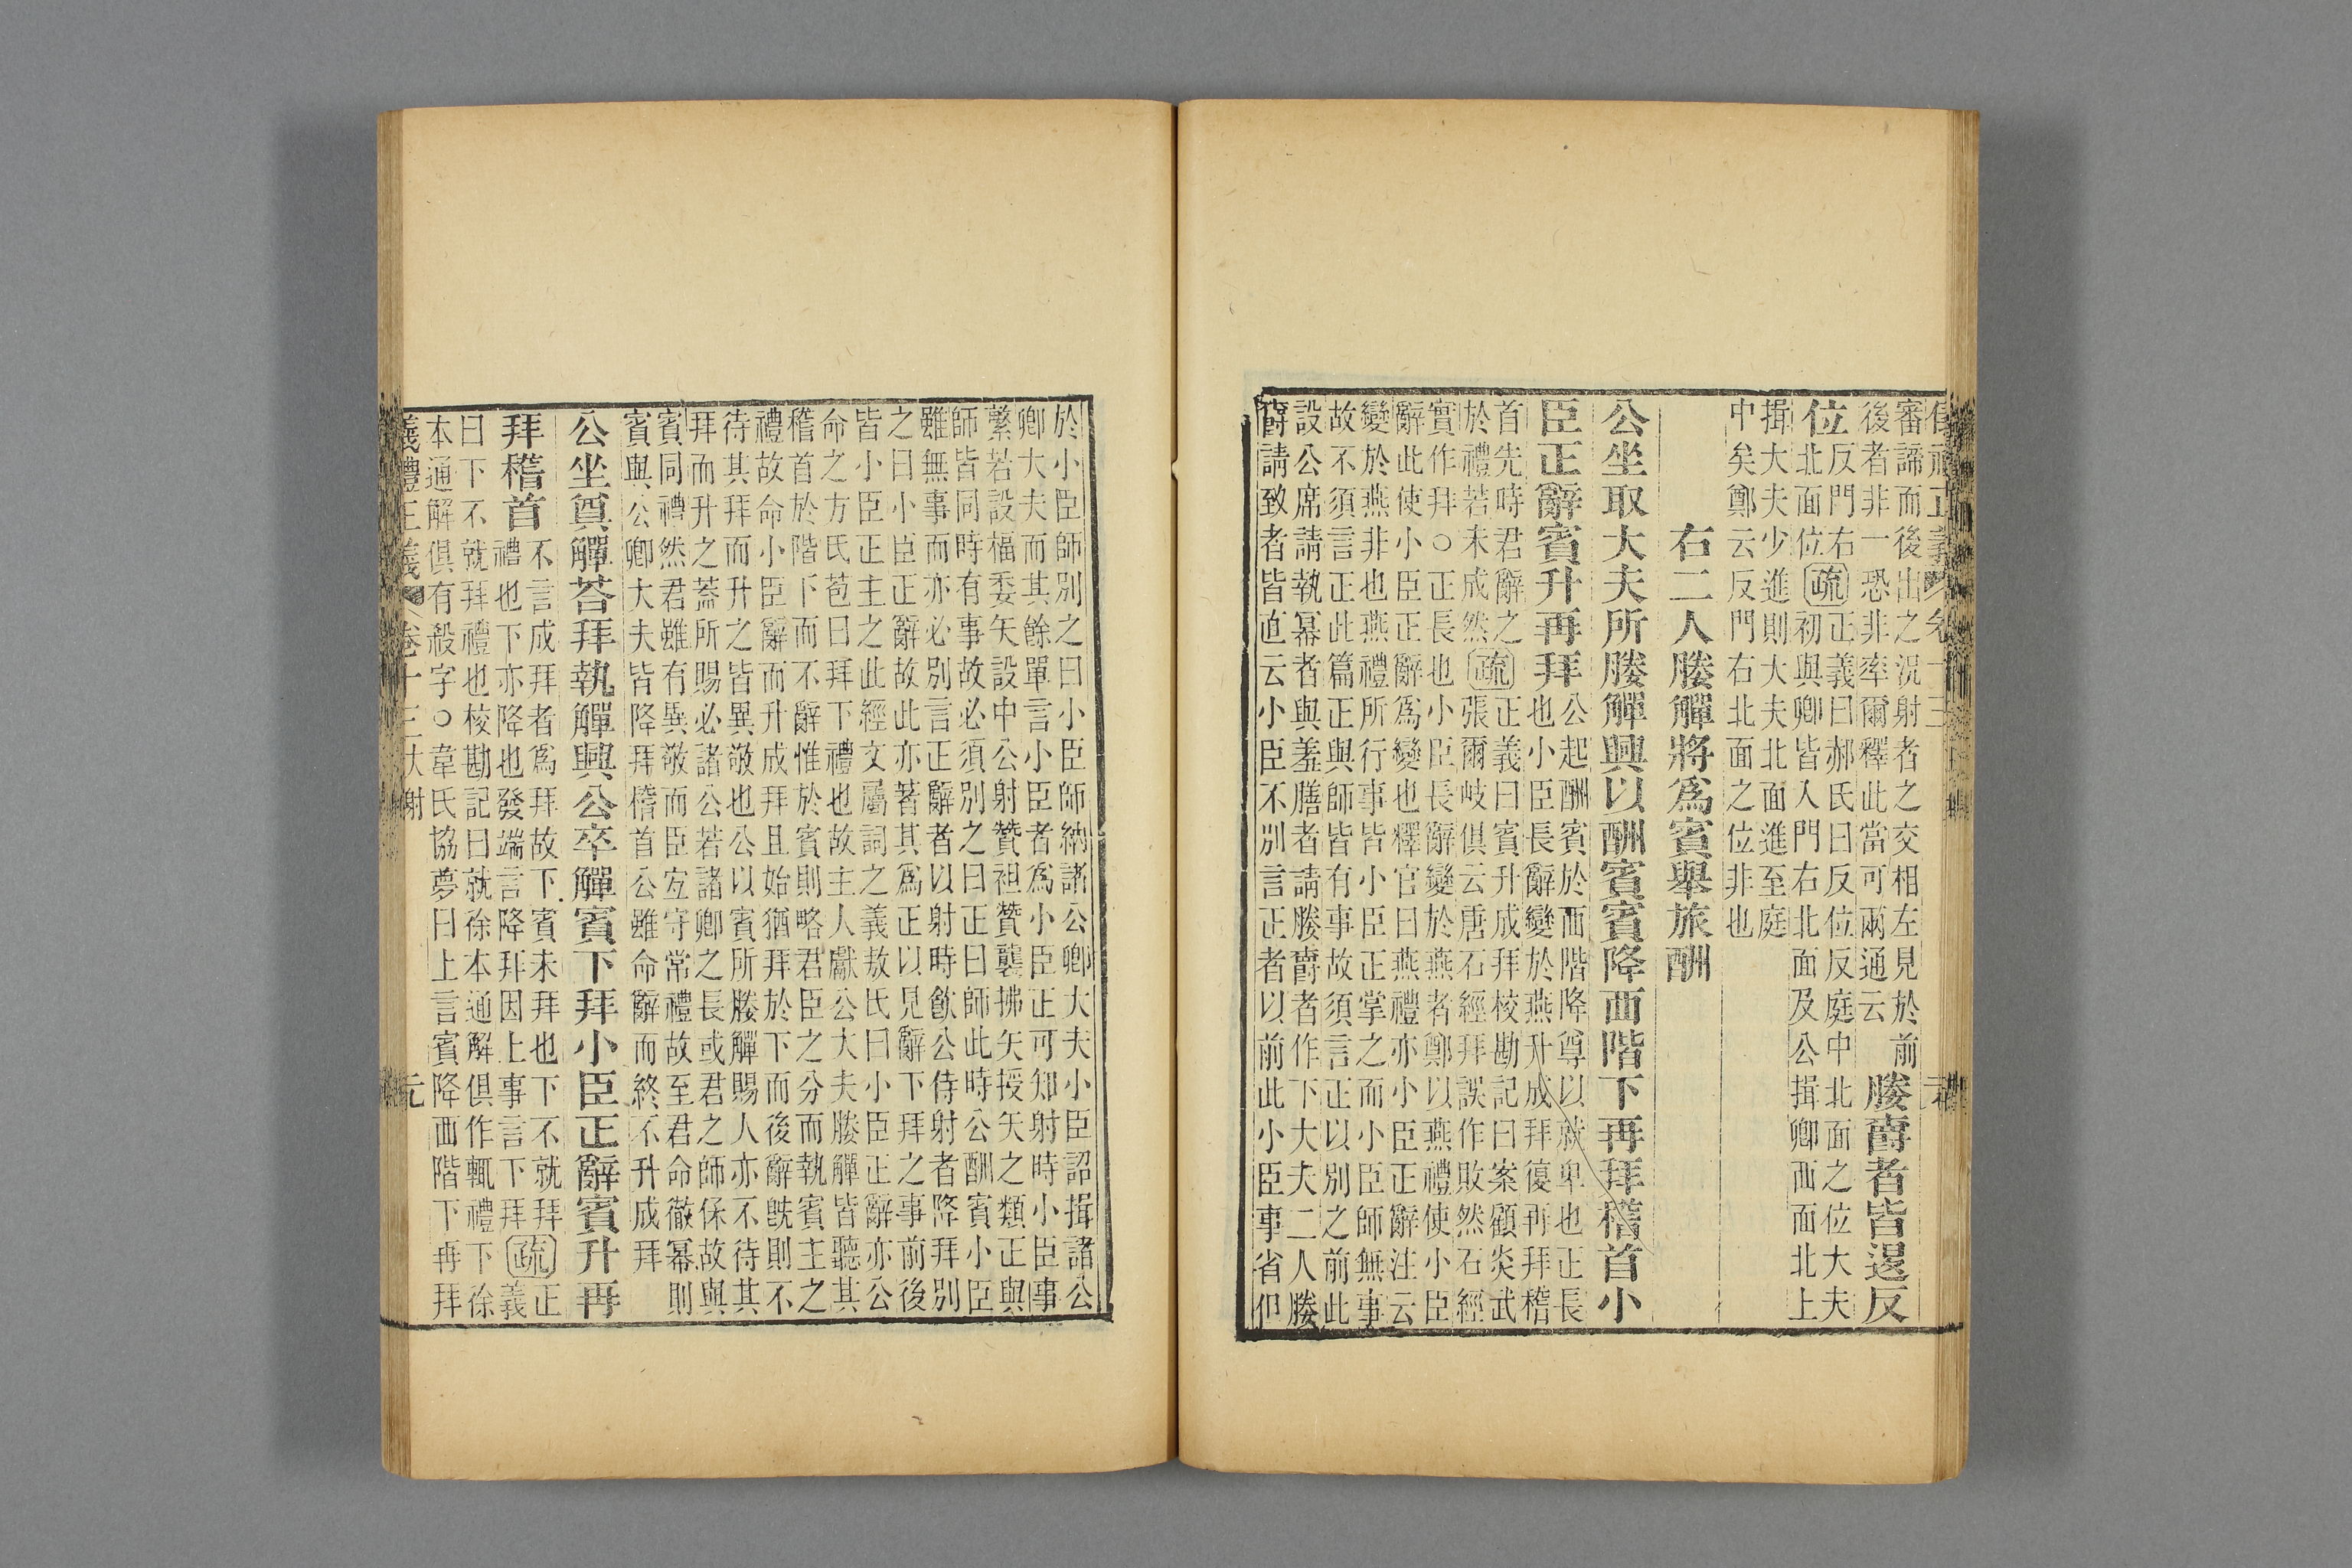 審諦而後出之況射者之交相左見於前
後者非一恐非率爾釋此當可兩通云
媵爵者皆退反
位
反門右
北面位
疏
正義曰郝氏曰反位反庭中北面之位大夫
初與卿皆入門右北面及公揖卿西面北上
揖大夫少進則大夫北面進至庭
中矣鄭云反門右北面之位非也
右二人媵觶將爲賓舉旅酬
公坐取大夫所媵觶興以酬賓賓降西階下再拜稽首小
臣正辭賓升再拜
公起酬賓於西階降尊以就卑也正長
也小臣長辭變於燕升成拜復再拜稽
首先時君辭之
於禮若未成然
疏
正義曰賓升成拜校勘記曰案顧炎武
張爾岐俱云唐石經拜誤作敗然石經
實作拜○正長也小臣長辭變於燕者鄭以燕禮使小臣
辭此使小臣正辭爲變也釋官曰燕禮亦小臣正辭注云
變於燕非也燕禮所行事皆小臣正掌之而小臣師無事
故不須言正此篇正與師皆有事故須言正以別之前此
設公席請執冪者與羞膳者請媵爵者作下大夫二人媵
爵請致者皆直云小臣不別言正者以前此小臣事省但
於小臣師別之曰小臣師納諸公卿大夫小臣詔揖諸公
卿大夫而其餘單言小臣者爲小臣正可知射時小臣事
繁若設楅委矢設中公射贊袒贊襲拂矢授矢之類正與
師皆同時有事故必須別之曰正曰師此時公酬賓小臣
雖無事而亦必別言正辭者以射時飲公侍射者降拜別
之曰小臣正辭故此亦著其爲正以見辭下拜之事前後
皆小臣正主之此經文屬詞之義敖氏曰小臣正辭亦公
命之方氏苞曰拜下禮也故主人獻公大夫媵觶皆聽其
稽首於階下而不辭惟於賓則略君臣之分而執賓主之
禮故命小臣辭而升成拜且始猶拜於下而後辭旣則不
待其拜而升之皆異敬也公以賓所媵觶賜人亦不待其
拜而升之蓋所賜必諸公若諸卿之長或君之師保故與
賓同禮然君雖有異敬而臣宜守常禮故至君命徹冪則
賓與公卿大夫皆降拜稽首公雖命辭而終不升成拜
公坐奠觶荅拜執觶興公卒觶賓下拜小臣正辭賓升再
拜稽首
不言成拜者爲拜故下賓未拜也下不就拜
禮也下亦降也發端言降拜因上事言下拜
疏
正
義
曰下不就拜禮也校勘記曰就徐本通解俱作輒禮下徐
本通解俱有殺字○韋氏協夢曰上言賓降西階下再拜